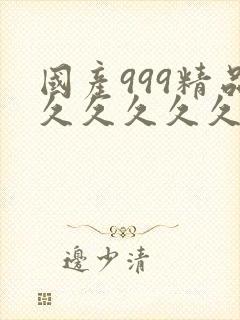 國產999精品
久久久久久
邊少清